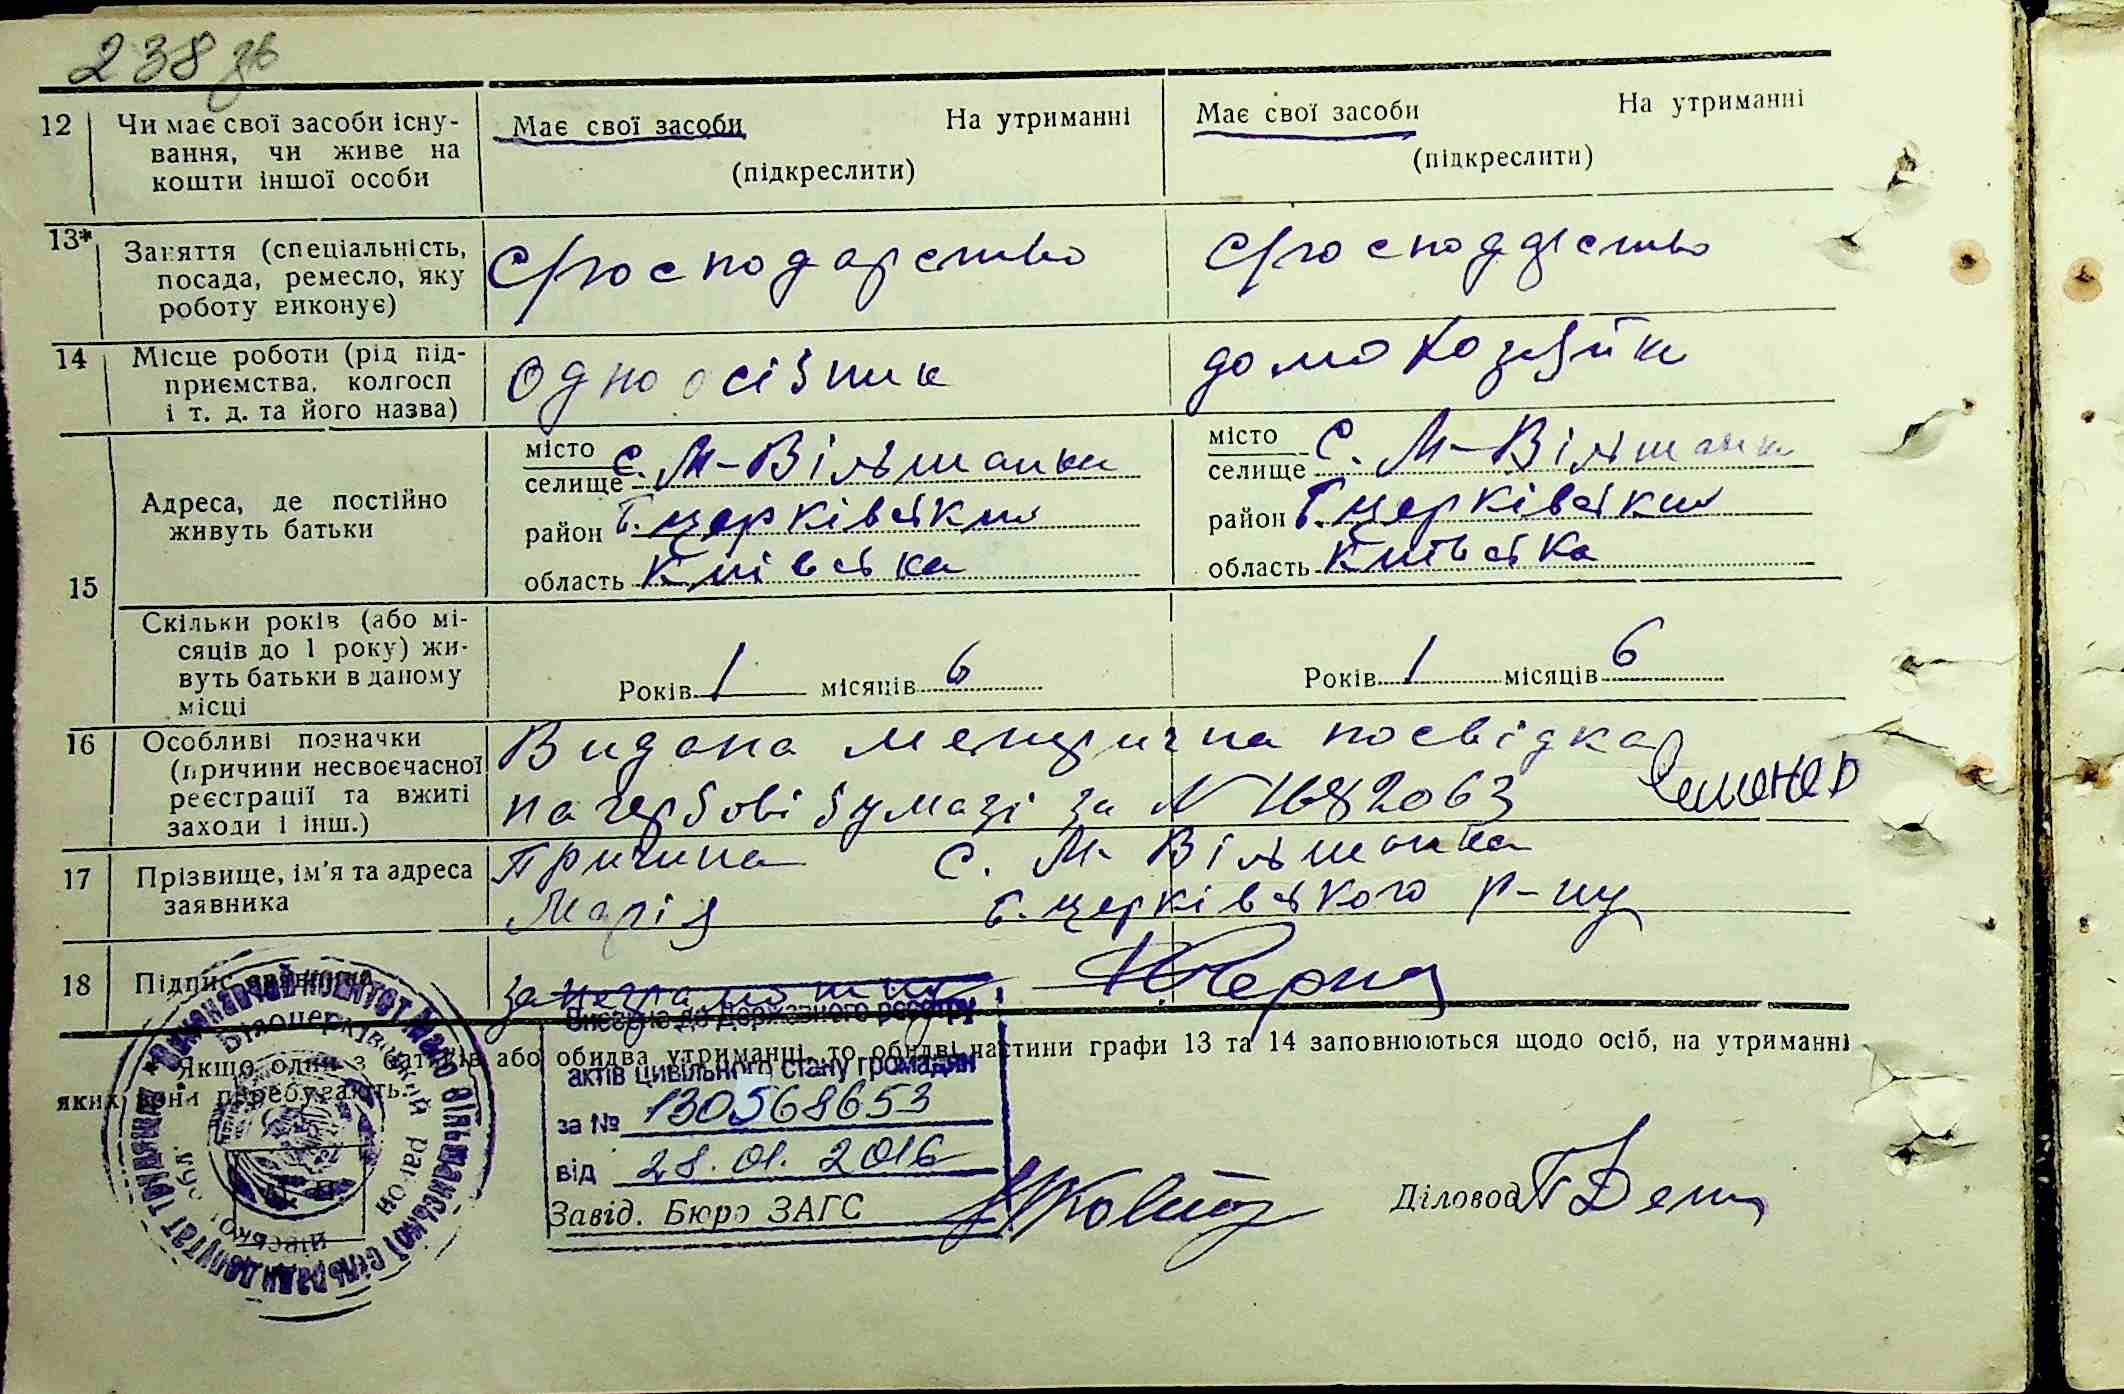 238 зв
12 Чи має свої засоби існу- Має свої засоби На утриманні Має свої засоби На утриманні
вання, чи живе на (підкреслити) (підкреслити)
кошти іншої особи
13* Заняття (спеціальність, с/господарство с/господарство
посада, ремесло, яку
роботу виконує)
14 Місце роботи (рід під- одноосібник домохозяйка
приємства, колгосп
і т. д. та його назва)
15 Адреса, де постійно
живуть батьки
місто
селище с. М-Вільшанка
район Б. церківський
область Київська
місто
селище с. М-Вільшанка
район Б. церківський
область Київська
Скільки років (або мі-
сяців до 1 року) жи-
вуть батьки в даному
місці
Років 1 місяців 6 Років 1 місяців 6
16 Особливі позначки Видана метрична посвідка
(причини несвоєчасної
реєстрації та вжиті на гербові бумазі за №
заходи і інш.)
17 Прізвище, ім'я та адреса Причина с. М-Вільшанка
заявника Марія Б. церківського р-ну
18 Підпис заявника за неграмотну
* Якщо один з батьків або обидва утриманні, то обидві частини графи 13 та 14 заповнюються щодо осіб, на утриманні
яких вони перебувають.
Внесено до Державного реєстру
актів цивільного стану громадян
за № 130568653
від 28.01.2016
Завід. Бюро ЗАГС Діловод
Виконавчий комітет Мало Вільшанської сільради депутат трудящих
Білоцерківський район Київської обл.